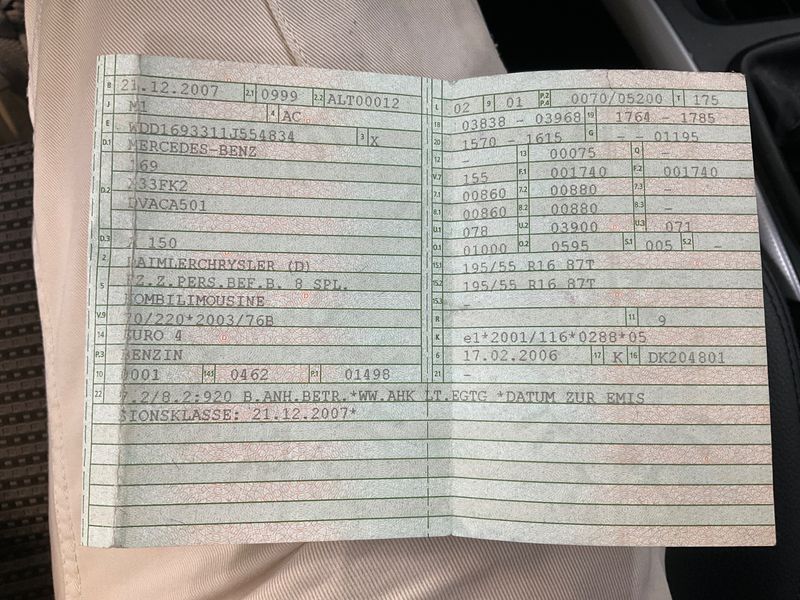 B 21.12.2007 2.1 0999 2.2 ALT00012
J M1 4 AC
E WDD1693311J554834 3 X
D.1 MERCEDES-BENZ
169
D.2 X33FK2
DVACA501
D.3 A 150
2 DAIMLERCHRYSLER (D)
5 FZ.Z.PERS.BEF.B. 8 SPL.
KOMBILIMOUSINE
V.9 70/220*2003/76B
14 EURO 4
P.3 BENZIN
10 0001 14.1 0462 P.1 01498
L 02 9 01 P.2 P.4 0070/05200 T 175
18 03838 - 03968 19 1764 - 1785
20 1570 - 1615 G - - 01195
12 - 13 00075 Q -
V.7 155 F.1 001740 F.2 001740
7.1 00860 7.2 00880 7.3 -
8.1 00860 8.2 00880 8.3 -
U.1 078 U.2 03900 U.3 071
O.1 01000 O.2 0595 S.1 005 S.2 -
15.1 195/55 R16 87T
15.2 195/55 R16 87T
15.3 -
R 11 9
K e1*2001/116*0288*05
6 17.02.2006 17 K 16 DK204801
21 -
22 7.2/8.2:920 B.ANH.BETR.*WW.AHK LT.EGTG *DATUM ZUR EMIS
SIONSKLASSE: 21.12.2007*